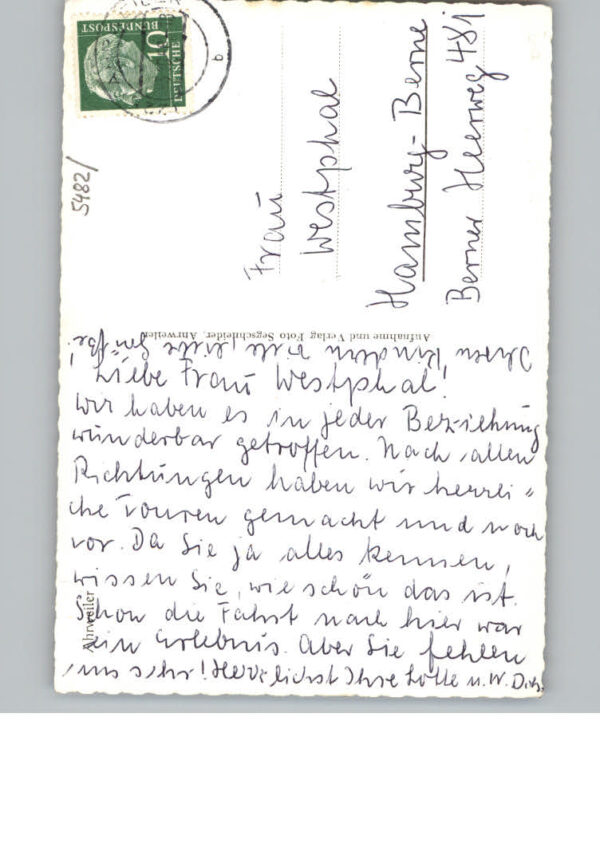 DEUTSCHE
BUNDESPOST
10
b
5482/
Frau
Westphal
Hamburg-Berne
Berner Heerweg 481
Aufnahme und Verlag Foto Segschneider, Ahrweiler
Ahrweiler
Liebe Frau Westphal!
Wir haben es in jeder Beziehung
wunderbar getroffen. Nach allen
Richtungen haben wir herrli=
che Touren gemacht und noch
vor. Da Sie ja alles kennen,
wissen Sie, wie schön das ist.
Schon die Fahrt nach hier war
ein Erlebnis. Aber Sie fehlen
uns sehr! Herzlichst Ihre Lotte u. W.
Ihren Kindern viele liebe Grüße!